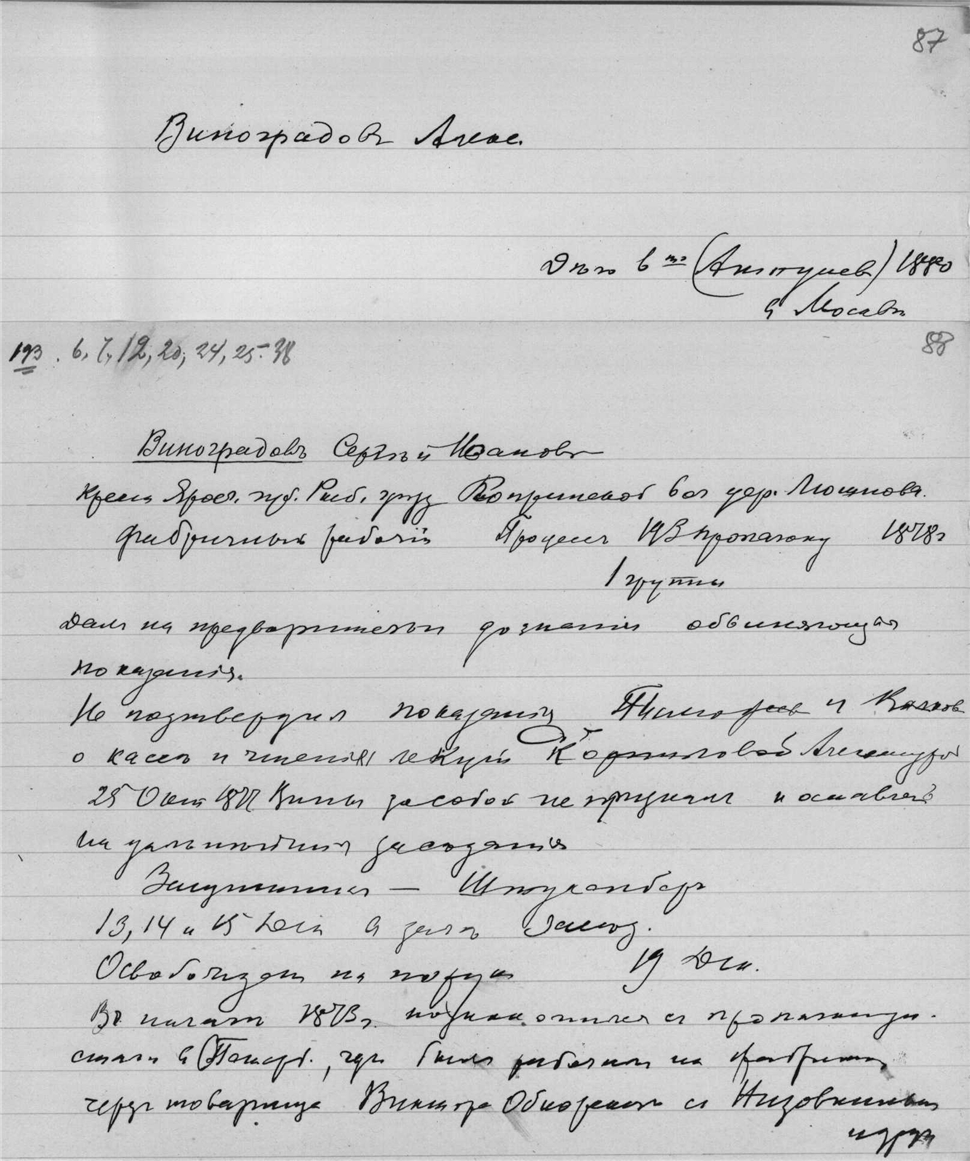 87
Виноградовъ Алекс.
Дѣло 6 го (Антушев) 1880
в Москвѣ
193. 6, 7, 12, 20, 24, 25-38
88
Виноградовъ Сергѣй Иванов
Крест. Яросл. губ. Рыб. Копринской вол дер.
фабричный рабочій Процессъ 193 пропаганду 1878 г
1 группы
Далъ на предварительн дознаніи обвиняющія
показанія.
Не подтвердил показанія и
о кассѣ и чтеніи лекцій Корниловой Александрой
25 Окт 1877 Вины за собой не призналъ и оставленъ
на дальнѣйшія засѣданія
Защитникъ — Штукенберг
13, 14 и 15 Дек в залѣ Засѣд.
Освобожден на поруки 19 Дек.
Въ началѣ 1873 г. познакомился съ пропаганди-
стами в Петерб., гдѣ былъ рабочим на фабрикѣ,
черезъ товарища Виктора Обнорскаго съ Низовкинымъ
и др.